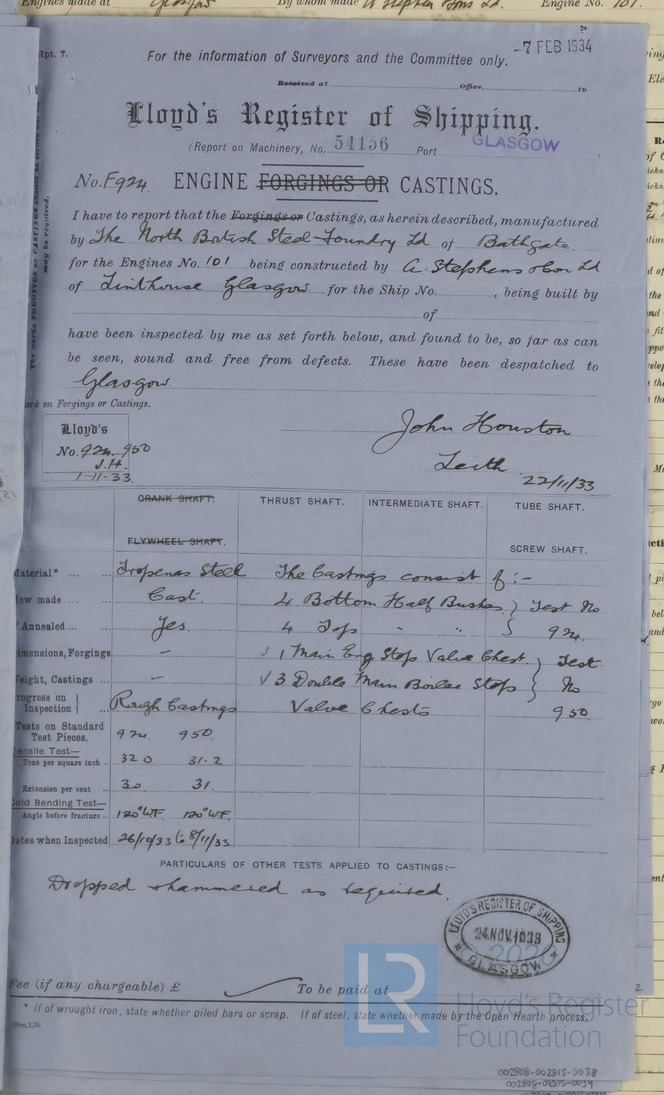 Engines made at Glasgow By whom made A Stephen & Sons Ld. Engine No. 101.
Rpt. 7.
For the information of Surveyors and the Committee only.
-7 FEB 1934
Received at Office, 19
Lloyd's Register of Shipping.
(Report on Machinery, No. 54156 Port GLASGOW
No. F924. ENGINE FORGINGS OR CASTINGS.
I have to report that the Forgings or Castings, as herein described, manufactured
by The North British Steel Foundry Ld of Bathgate
for the Engines No. 101 being constructed by A. Stephens & Son Ld
of Linthouse Glasgow for the Ship No. , being built by
of
have been inspected by me as set forth below, and found to be, so far as can
be seen, sound and free from defects. These have been despatched to
Glasgow.
ark on Forgings or Castings.
Lloyd's
No. 924 950
J.H.
1-11-33
John Houston
Leith 22/11/33
CRANK SHAFT. THRUST SHAFT. INTERMEDIATE SHAFT. TUBE SHAFT.
FLYWHEEL SHAFT. SCREW SHAFT.
Material* Tropenas Steel The Castings consist of :-
ow made Cast. 4 Bottom Half Bushes } Test No
Annealed Yes. 4 Tops " " } 924.
imensions, Forgings - √ 1 Main Eng Stop Valve Chest. } Test
eight, Castings - √ 3 Double Main Boiler Stop } No
rogress on Inspection } Rough Castings Valve Chests 950
Tests on Standard Test Pieces. 924. 950.
ensile Test—
Tons per square inch 32.0 31.2
Extension per cent 30. 31.
old Bending Test—
Angle before fracture 120° WF. 120° WF.
ates when Inspected 26/10/33 to 8/11/33
PARTICULARS OF OTHER TESTS APPLIED TO CASTINGS:—
Dropped & hammered as required.
LLOYD'S REGISTER OF SHIPPING
24.NOV.1933
GLASGOW
Fee (if any chargeable) £ To be paid at
* If of wrought iron, state whether piled bars or scrap. If of steel, state whether made by the Open Hearth process.
LR
Lloyd's Register
Foundation
002808-002815-0038
002808-002815-0039